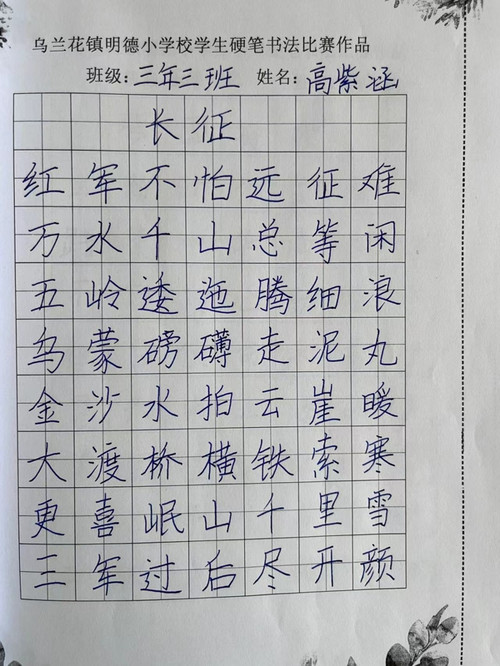 乌兰花镇明德小学校学生硬笔书法比赛作品
班级：三年三班 姓名：高紫涵
长征
红军不怕远征难
万水千山总等闲
五岭逶迤腾细浪
乌蒙磅礴走泥丸
金沙水拍云崖暖
大渡桥横铁索寒
更喜岷山千里雪
三军过后尽开颜